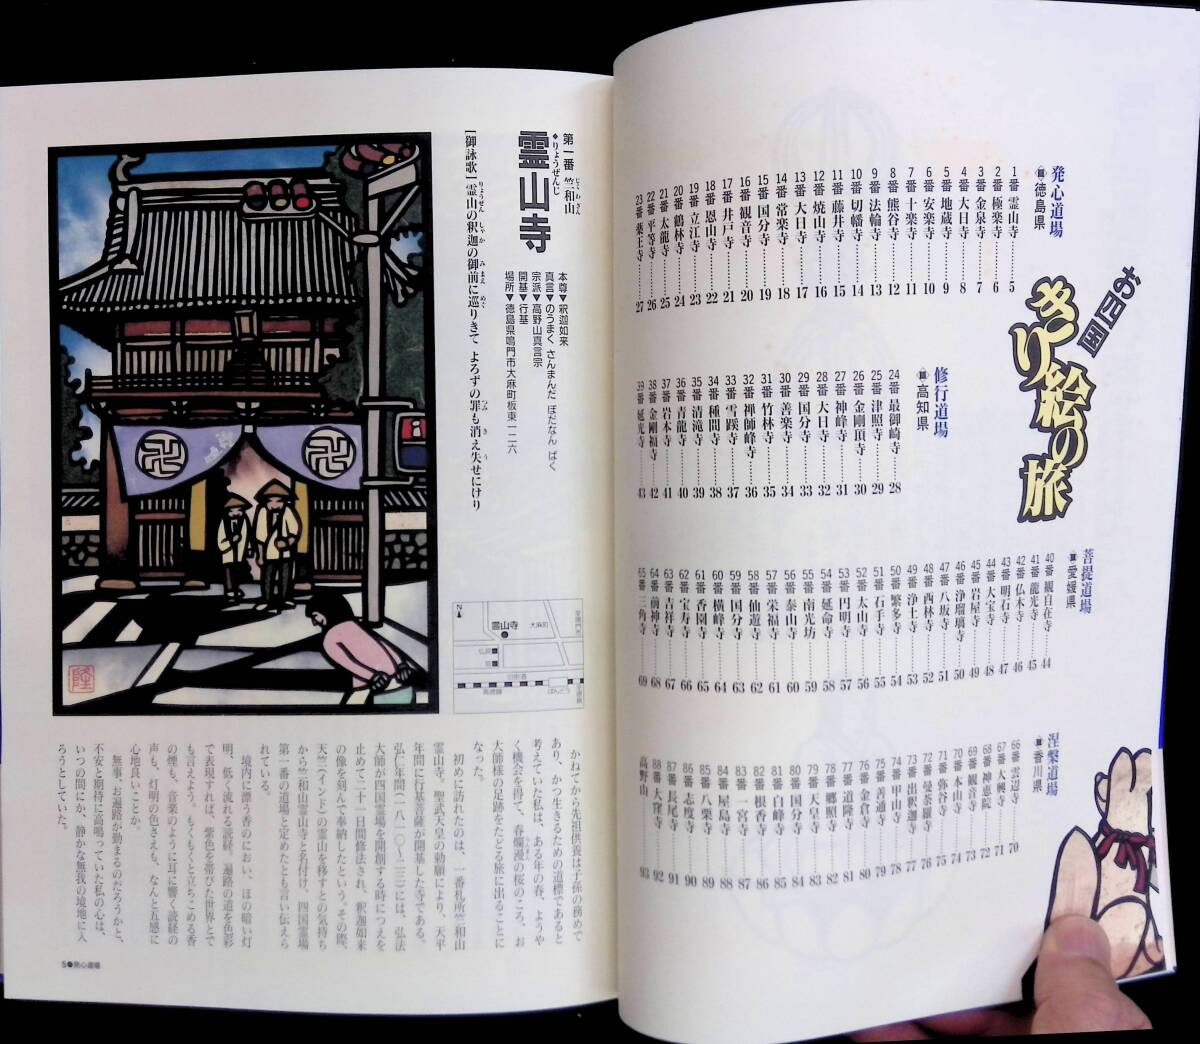 お四国
きり絵の旅
発心道場
徳島県
1番 霊山寺……5
2番 極楽寺……6
3番 金泉寺……7
4番 大日寺……8
5番 地蔵寺……9
6番 安楽寺……10
7番 十楽寺……11
8番 熊谷寺……12
9番 法輪寺……13
10番 切幡寺……14
11番 藤井寺……15
12番 焼山寺……16
13番 大日寺……17
14番 常楽寺……18
15番 国分寺……19
16番 観音寺……20
17番 井戸寺……21
18番 恩山寺……22
19番 立江寺……23
20番 鶴林寺……24
21番 太龍寺……25
22番 平等寺……26
23番 薬王寺……27
修行道場
高知県
24番 最御崎寺……28
25番 津照寺……29
26番 金剛頂寺……30
27番 神峰寺……31
28番 大日寺……32
29番 国分寺……33
30番 善楽寺……34
31番 竹林寺……35
32番 禅師峰寺……36
33番 雪蹊寺……37
34番 種間寺……38
35番 清滝寺……39
36番 青龍寺……40
37番 岩本寺……41
38番 金剛福寺……42
39番 延光寺……43
菩提道場
愛媛県
40番 観自在寺……44
41番 龍光寺……45
42番 仏木寺……46
43番 明石寺……47
44番 大宝寺……48
45番 岩屋寺……49
46番 浄瑠璃寺……50
47番 八坂寺……51
48番 西林寺……52
49番 浄土寺……53
50番 繁多寺……54
51番 石手寺……55
52番 太山寺……56
53番 円明寺……57
54番 延命寺……58
55番 南光坊……59
56番 泰山寺……60
57番 栄福寺……61
58番 仙遊寺……62
59番 国分寺……63
60番 横峰寺……64
61番 香園寺……65
62番 宝寿寺……66
63番 吉祥寺……67
64番 前神寺……68
65番 三角寺……69
涅槃道場
香川県
66番 雲辺寺……70
67番 大興寺……71
68番 神恵院……72
69番 観音寺……73
70番 本山寺……74
71番 弥谷寺……75
72番 曼荼羅寺……76
73番 出釈迦寺……77
74番 甲山寺……78
75番 善通寺……79
76番 金倉寺……80
77番 道隆寺……81
78番 郷照寺……82
79番 天皇寺……83
80番 国分寺……84
81番 白峰寺……85
82番 根香寺……86
83番 一宮寺……87
84番 屋島寺……88
85番 八栗寺……89
86番 志度寺……90
87番 長尾寺……91
88番 大窪寺……92
高野山……93
第一番 竺和山
霊山寺
りょうぜんじ
本尊▼釈迦如来
真言▼のうまく さんまんだ ぼだなん ばく
宗派▼高野山真言宗
開基▼行基
場所▼徳島県鳴門市大麻町板東一二六
[御詠歌] 霊山の釈迦の御前に巡りきて よろずの罪も消え失せにけり
N
霊山寺
大麻町
ばんどう
高徳線
かねてから先祖供養は子孫の務めで
あり、かつ生きるための道標であると
考えていた私は、ある年の春、ようや
く機会を得て、春爛漫の桜のころ、お
大師様の足跡をたどる旅に出ることに
なった。
初めに訪れたのは、一番札所竺和山
霊山寺。聖武天皇の勅願により、天平
年間に行基菩薩が開基した寺である。
弘仁年間（八一〇〜二三）には、弘法
大師が四国霊場を開創する時につえを
止めて二十一日間修法され、釈迦如来
の像を刻んで奉納したという。その際、
天竺（インド）の霊山を移すとの気持ち
から竺和山霊山寺と名付け、四国霊場
第一番の道場と定めたとも言い伝えら
れている。
境内に漂う香のにおい、ほの暗い灯
明、低く流れる読経、遍路の道を色彩
で表現すれば、紫色を帯びた世界とで
も言えよう。もくもくと立ちこめる香
の煙も、音楽のように耳に響く読経の
声も、灯明の色さえも、なんと五感に
心地良いことか。
無事、お遍路が勤まるのだろうかと、
不安と期待に高鳴っていた私の心は、
いつの間にか、静かな無我の境地に入
ろうとしていた。
5 発心道場